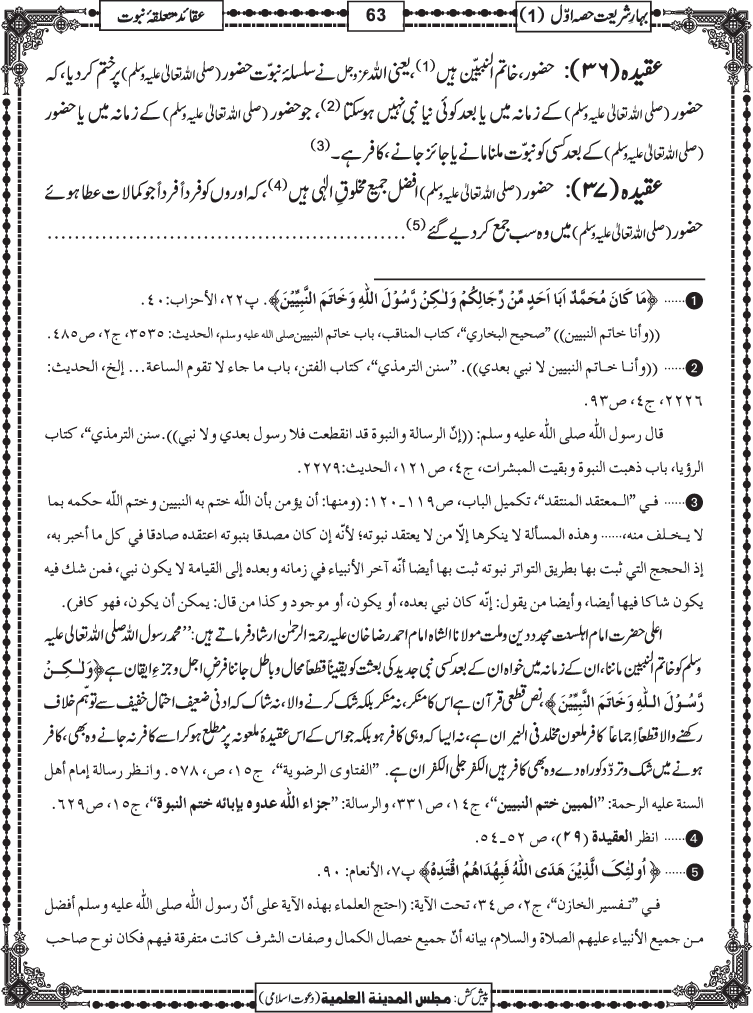 بہارِشریعت حصہ اوّل (1)
63
عقائد متعلقۂ نبوت
عقیدہ (۳۶): حضور، خاتم النبیّین ہیں (1)، یعنی اللہ عزوجل نے سلسلۂ نبوّت حضور (صلی اللہ تعالیٰ علیہ وسلم) پر ختم کر دیا، کہ
حضور (صلی اللہ تعالیٰ علیہ وسلم) کے زمانہ میں یا بعد کوئی نیا نبی نہیں ہوسکتا (2)، جو حضور (صلی اللہ تعالیٰ علیہ وسلم) کے زمانہ میں یا حضور
(صلی اللہ تعالیٰ علیہ وسلم) کے بعد کسی کو نبوّت ملنا مانے یا جائز جانے، کافر ہے۔ (3)
عقیدہ (۳۷): حضور (صلی اللہ تعالیٰ علیہ وسلم) افضل جمیع مخلوقِ الٰہی ہیں (4)، کہ اوروں کو فرداً فرداً جو کمالات عطا ہوئے
حضور (صلی اللہ تعالیٰ علیہ وسلم) میں وہ سب جمع کر دیے گئے (5)..................................................
1 ...... ﴿مَا كَانَ مُحَمَّدٌ اَبَا اَحَدٍ مِّنْ رِّجَالِكُمْ وَلٰـكِنْ رَّسُوْلَ اللّٰهِ وَخَاتَمَ النَّبِيِّيْنَ﴾. پ۲۲، الأحزاب: ۴۰.
((وأنا خاتم النبيين)) ”صحيح البخاري“، كتاب المناقب، باب خاتم النبيين صلى الله عليه وسلم، الحديث: ۳۵۳۵، ج۲، ص۴۸۵.
2 ...... ((وأنـا خـاتم النبيين لا نبي بعدي)). ”سنن الترمذي“، كتاب الفتن، باب ما جاء لا تقوم الساعة... إلخ، الحديث:
۲۲۲۶، ج٤، ص۹۳.
قال رسول الله صلى الله عليه وسلم: ((إنّ الرسالة والنبوة قد انقطعت فلا رسول بعدي ولا نبي)). سنن الترمذي“، كتاب
الرؤيا، باب ذهبت النبوة وبقيت المبشرات، ج٤، ص۱۲۱، الحديث: ۲۲۷۹.
3 ...... فـي ”الـمعتقد المنتقد“، تكميل الباب، ص۱۱۹ـ۱۲۰: (ومنها: أن يؤمن بأن الله ختم به النبيين وختم الله حكمه بما
لا يـخـلـف منه،...... وهذه المسألة لا ينكرها إلّا من لا يعتقد نبوته؛ لأنّه إن كان مصدقا بنبوته اعتقده صادقا في كل ما أخبر به،
إذ الحجج التي ثبت بها بطريق التواتر نبوته ثبت بها أيضا أنّه آخر الأنبياء في زمانه وبعده إلى القيامة لا يكون نبي، فمن شك فيه
يكون شاكا فيها أيضا، وأيضا من يقول: إنّه كان نبي بعده، أو يكون، أو موجود وكذا من قال: يمكن أن يكون، فهو كافر).
اعلی حضرت امام اہلسنت مجدد دین وملت مولانا الشاہ امام احمد رضا خان علیہ رحمۃ الرحمٰن ارشاد فرماتے ہیں: ’’محمد رسول اللہ صلی اللہ تعالیٰ علیہ
وسلم کو خاتم النبیین ماننا، ان کے زمانہ میں خواہ ان کے بعد کسی نبی جدید کی بعثت کو یقیناً قطعاً محال وباطل جاننا فرضِ اجل وجزءِ ایقان ہے ﴿وَلٰـكِنْ
رَّسُوْلَ الـلّٰهِ وَخَاتَمَ النَّبِيِّيْنَ﴾، نص قطعی قرآن ہے اس کا منکر، نہ منکر بلکہ شک کرنے والا، نہ شاک کہ ادنی ضعیف احتمال خفیف سے توہّم خلاف
رکھنے والا قطعاً اجماعاً کافر ملعون مخلد فی النیران ہے، نہ ایسا کہ وہی کافر ہو بلکہ جو اس کے اس عقیدۂ ملعونہ پر مطلع ہو کر اسے کافر نہ جانے وہ بھی، کافر
ہونے میں شک وتردّد کو راہ دے وہ بھی کافر ہیں الکفر جلی الکفران ہے. ”الفتاوى الرضوية“، ج۱۵، ص۵۷۸. وانـظر رسالة إمام أهل
السنة عليه الرحمة: ”المبين ختم النبيين“، ج١٤، ص۳۳۱، والرسالة: ”جزاء الله عدوه بإبائه ختم النبوة“، ج۱۵، ص۶۲۹.
4 ...... انظر العقيدة (۲۹)، ص ۵۲ـ۵٤.
5 ...... ﴿اُولٰئِكَ الَّذِيْنَ هَدَى اللّٰهُ فَبِهُدَاهُمُ اقْتَدِهْ﴾ پ۷، الأنعام: ۹۰.
فـي ”تـفسير الخازن“، ج۲، ص۳٤، تحت الآية: (احتج العلماء بهذه الآية على أنّ رسول الله صلى الله عليه وسلم أفضل
مـن جميع الأنبياء عليهم الصلاة والسلام، بيانه أنّ جميع خصال الكمال وصفات الشرف كانت متفرقة فيهم فكان نوح صاحب
پیش کش: مجلس المدينة العلمية (دعوت اسلامی)